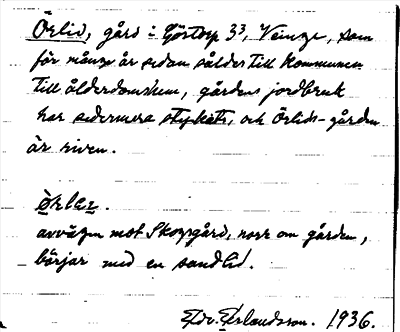 Örlid, gård i Göstorp 3³, Veinge, som
för många år sedan såldes till kommunen
till ålderdomshem, gårdens jordbruk
har sedermera styckats, och Örlids-gården
är riven.
avvägen mot Skoggård, norr om gården,
börjar med en sandlid.
Edv. Erlandsson. 1936.